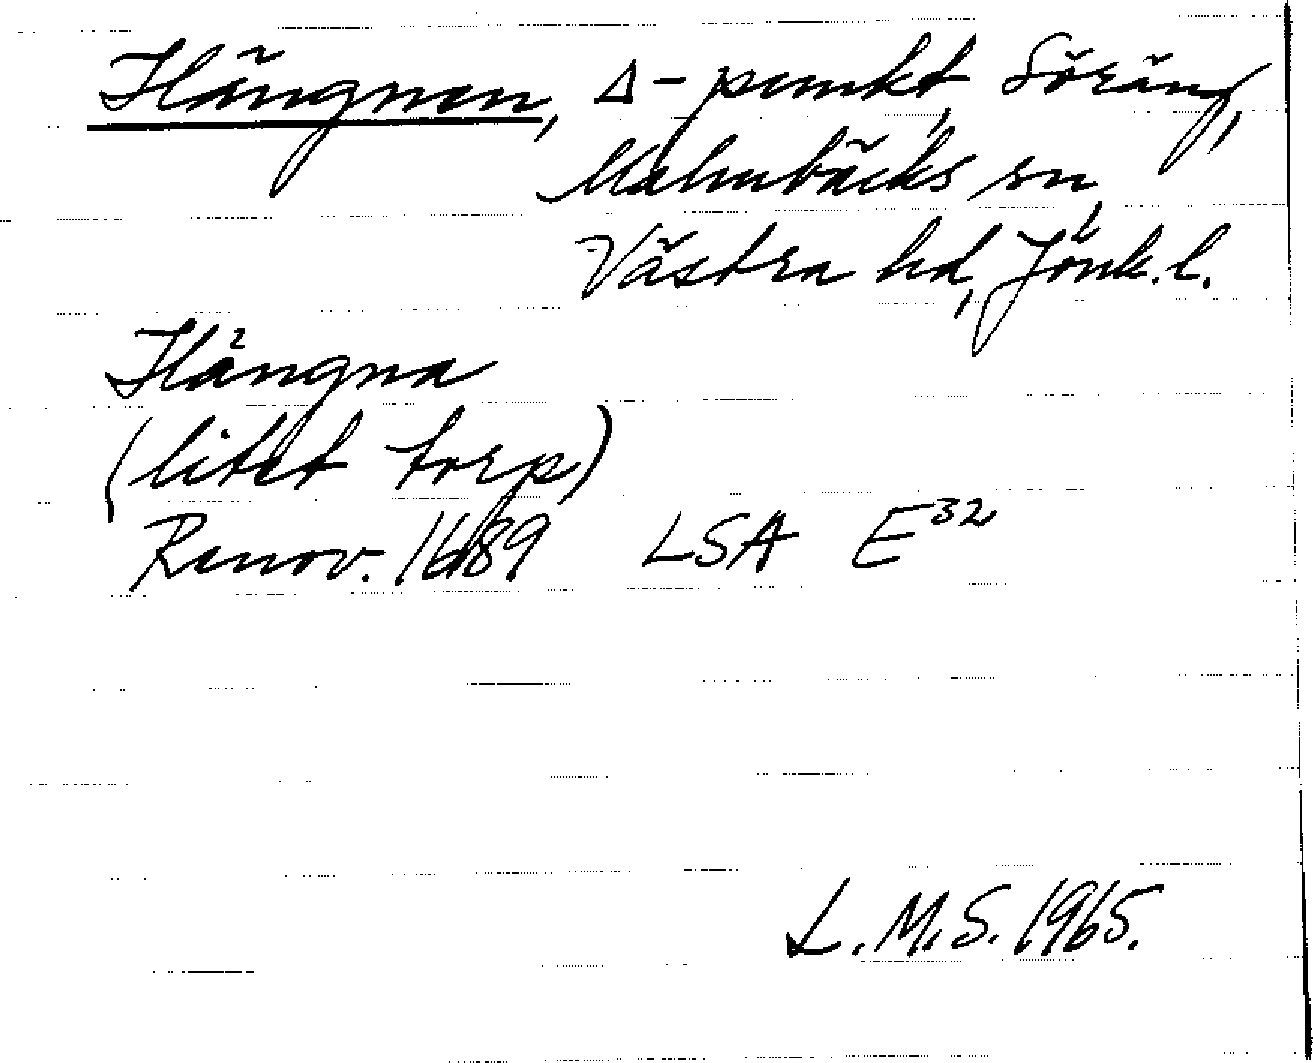 Hängnen, Δ-punkt, Söräng,
Malmbäcks sn,
Västra hd, Jönk.l.
Hängna
(litet torp)
Renov. 1689 LSA E32
L.M.S. 1965.